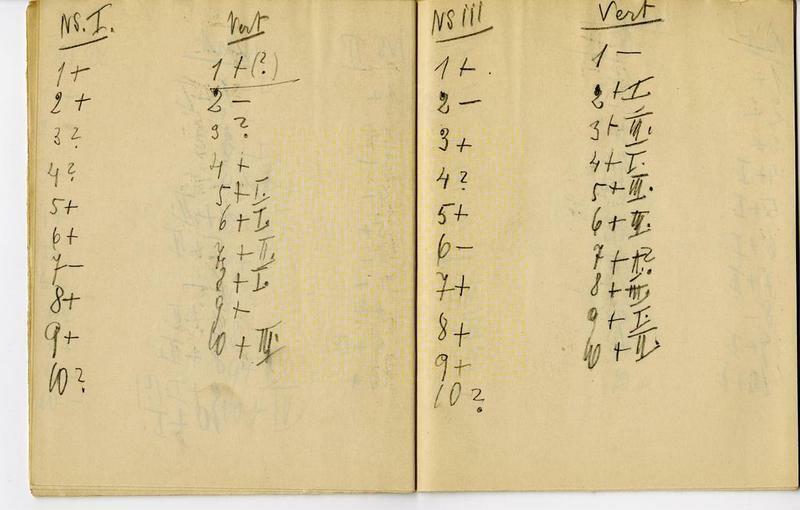 NS. I.
1 +
2 +
3 ?
4 ?
5 +
6 +
7 -
8 +
9 +
10 ?
Vert
1 + (?)
2 -
3 ?
4 +
5 + I.
6 + I.
7 + II.
8 + I.
9 +
10 + III.
NS III
1 + .
2 -
3 +
4 ?
5 +
6 -
7 +
8 +
9 +
10 ?
Vert
1 -
2 + I
3 + II.
4 + I.
5 + III.
6 + II.
7 +
8 + III.
9 + I.
10 + II.